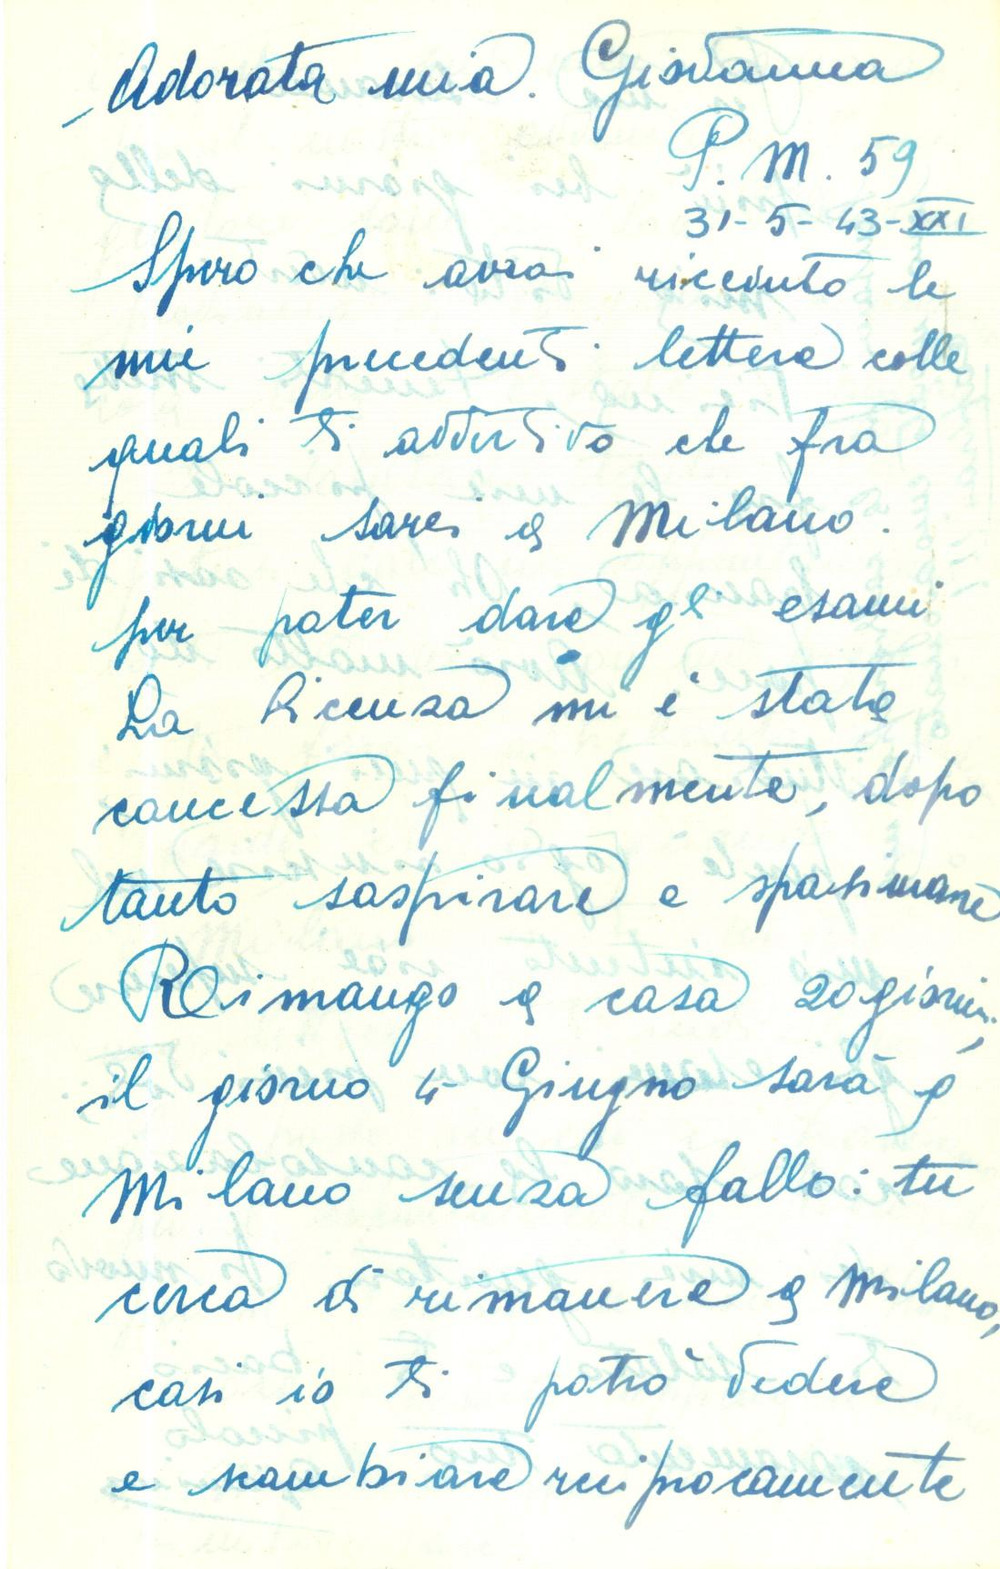 Adorata mia Giovanna
P. M. 59
31-5-43-XXI
Spero che avrai ricevuto le
mie precedenti lettere colle
quali ti avvertivo che fra
giorni sarei a Milano.
per poter dare gli esami
La licenza mi è stata
concessa finalmente, dopo
tanto sospirare e spasimare
Rimango a casa 20 giorni;
il giorno 4 Giugno sarò a
Milano senza fallo: tu
cerca di rimanere a Milano,
così io ti potrò vedere
e scambiare reciprocamente